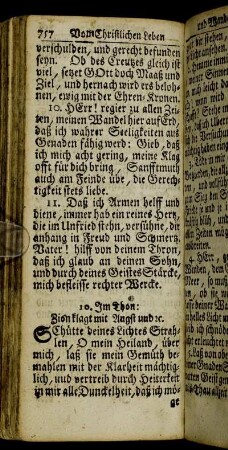 757 Vom Christlichen Leben
verschulden, und gerecht befunden
seyn. Ob des Creutzes gleich ist
viel, setzet GOtt doch Maaß und
Ziel, und hernach wird ers beloh-
nen, ewig mit der Ehren-Kronen.
10. HErr! regier zu allen Zei-
ten, meinen Wandel hier auf Erd,
daß ich wahrer Seeligkeiten aus
Genaden fähig werd: Gieb, daß
ich mich acht gering, meine Klag
offt für dich bring, Sanfftmuth
auch am Feinde üb, die Gerech-
tigkeit stets liebe.
11. Daß ich Armen helff und
diene, immer hab ein reines Hertz,
die im Unfried stehn, versühne, dir
anhang in Freud und Schmertz.
Vater! hilff von deinem Thron,
daß ich glaub an deinen Sohn,
und durch deines Geistes Stärcke,
mich befleisse rechter Wercke.
10. Im Thon:
Zion klagt mit Angst und ꝛc.
SChütte deines Lichtes Strah-
len, O mein Heiland, über
mich, laß sie mein Gemüth be-
mahlen mit der Klarheit mächtig-
lich, und vertreib durch Heiterkeit
in mir alle Dunckelheit, daß ich mö-
ge